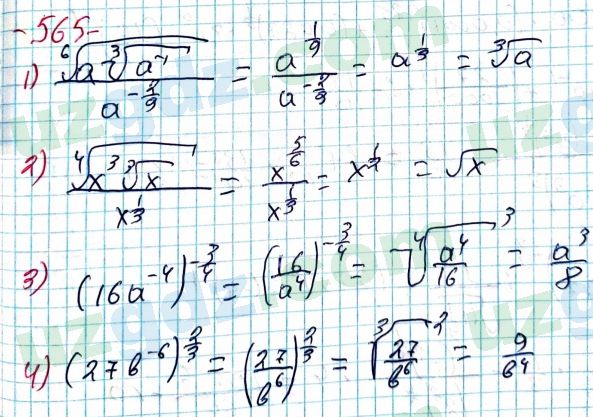 -565-
1) \frac{\sqrt[6]{a \cdot \sqrt[3]{a^{-1}}}}{a^{-\frac{2}{9}}} = \frac{a^{\frac{1}{9}}}{a^{-\frac{2}{9}}} = a^{\frac{1}{3}} = \sqrt[3]{a}
2) \frac{\sqrt[4]{x^3 \sqrt[3]{x}}}{x^{\frac{1}{3}}} = \frac{x^{\frac{5}{6}}}{x^{\frac{1}{3}}} = x^{\frac{1}{2}} = \sqrt{x}
3) (16a^{-4})^{-\frac{3}{4}} = \left(\frac{16}{a^4}\right)^{-\frac{3}{4}} = \sqrt[4]{\frac{a^4}{16}}^3 = \frac{a^3}{8}
4) (27b^{-6})^{\frac{2}{3}} = \left(\frac{27}{b^6}\right)^{\frac{2}{3}} = \sqrt[3]{\frac{27}{b^6}}^2 = \frac{9}{b^4}